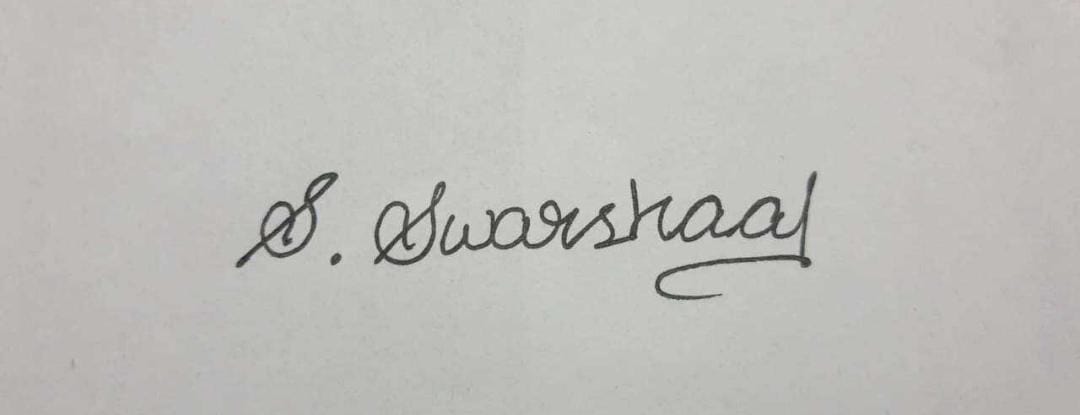 S. Swarshaa